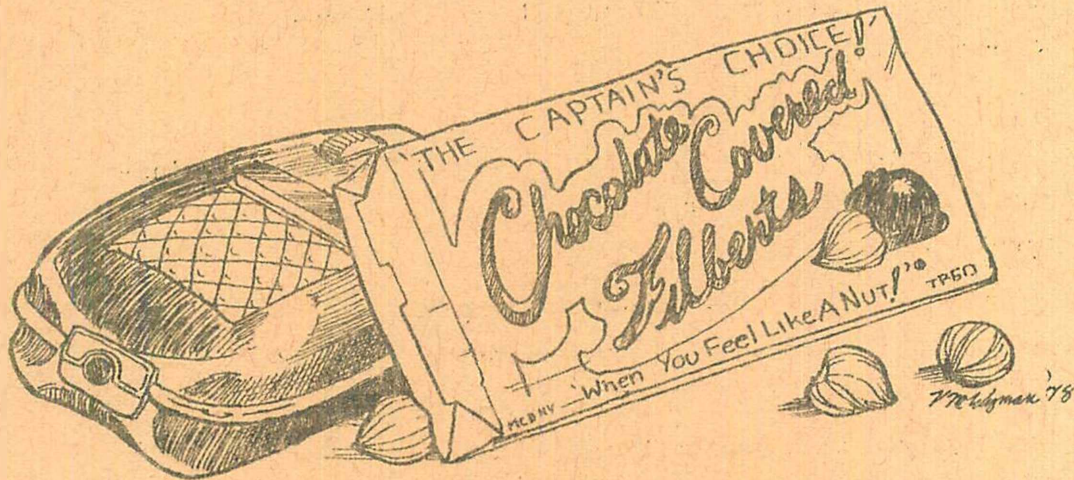 'THE CAPTAIN'S CHOICE!'
Chocolate Covered
Filberts
'When You Feel Like A Nut!'®
McBNY
'78